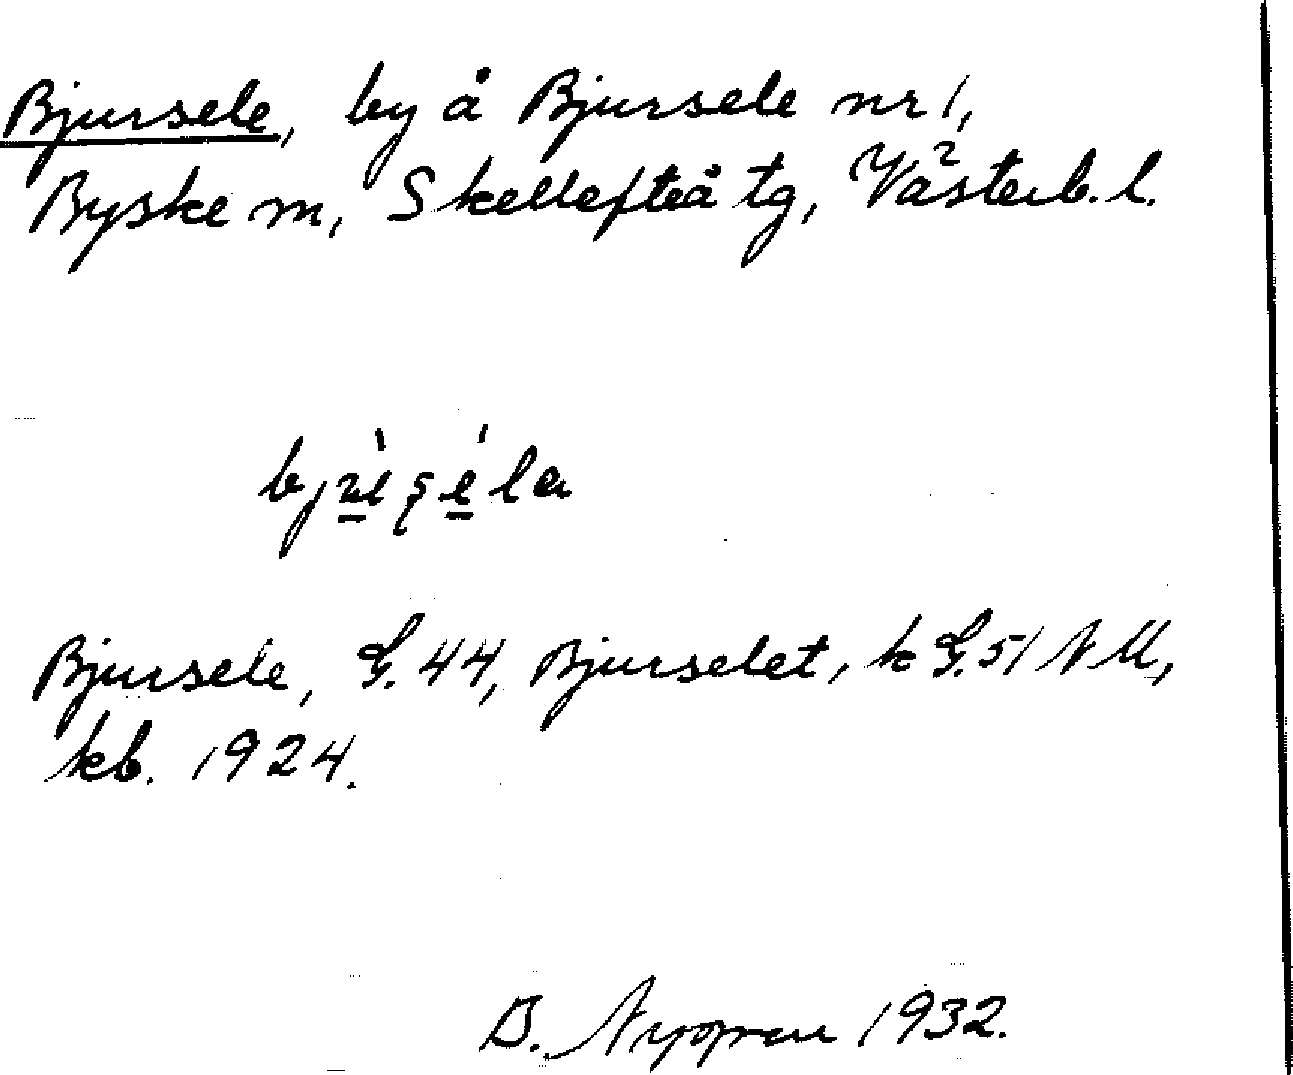 Bjursele, by å Bjursele nr 1,
Byske m, Skellefteå tg, Västerb. l.
Bjursele, G. 44, Bjurselet, k G. 51 NM,
kb. 1924.
B. 1932.